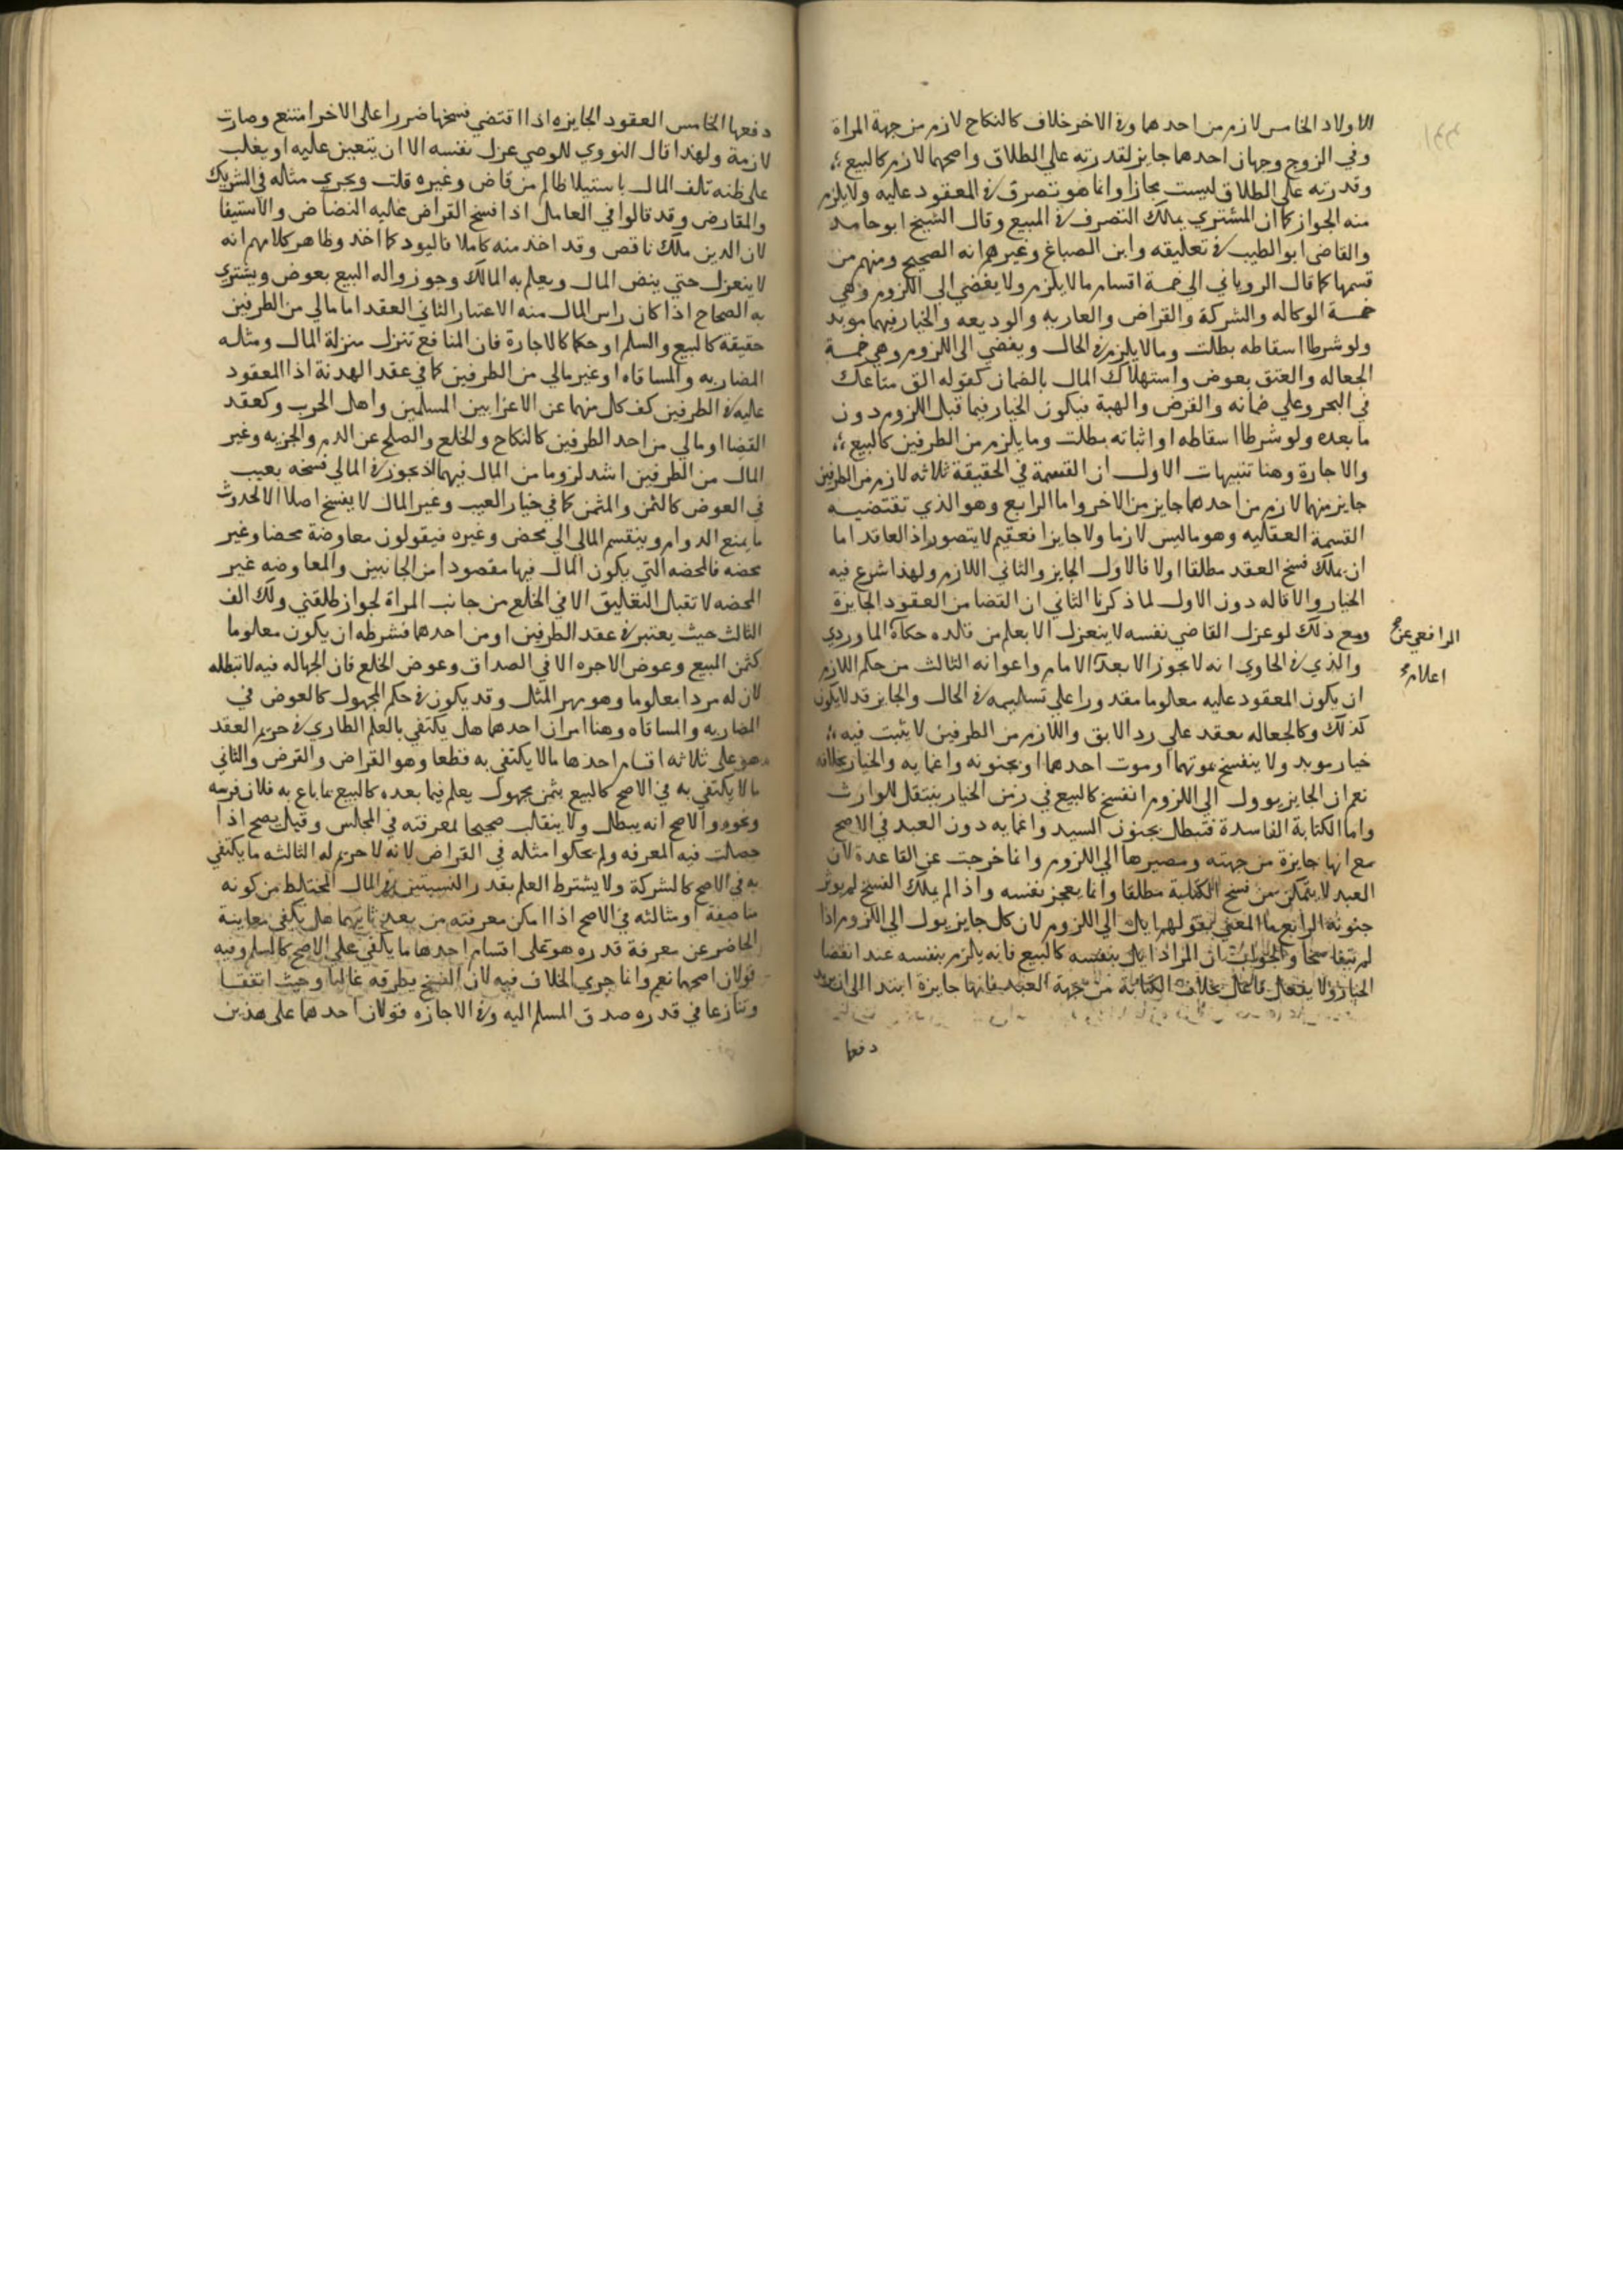 الاولاد الخامس لازم من احدهما وفي الاخر خلاف كالنكاح لازم من جهة المراة
وفي الزوج وجهان احدهما جايز لقدرته علي الطلاق واصحهما لازم كالبيع
وقدرته علي الطلاق ليست مجازا وانما هو تصرف في المعقود عليه ولا يلزم
منه الجواز كما ان المشتري يملك التصرف في المبيع وقال الشيخ ابو حامد
والقاضي ابو الطيب في تعليقه وابن الصباغ وغيرهم انه الصحيح ومنهم من
قسمها كما قال الروياني الي خمسة اقسام ما لا يلزم ولا يفضي الي اللزوم وهي
خمسة الوكاله والشركة والقراض والعاريه والوديعه والخيار فيهما موبد
ولو شرطا اسقاطه بطلت وما لا يلزم في الحال ويفضي الي اللزوم وهي خمسة
الجعاله والعتق بعوض واستهلاك المال بالضمان كقوله الق متاعك
في البحر وعلي ضمانه والقرض والهبة فيكون الخيار فيما قبل اللزوم دون
ما بعده ولو شرطا اسقاطه او اثباته بطلت وما يلزم من الطرفين كالبيع
والاجارة وهنا تنبيهات الاول ان القسمة في الحقيقة ثلاثه لازم من الطرفين
جايز منهما لازم من احدهما جايز من الاخر واما الرابع وهو الذي تقتضيه
القسمة العقليه وهو ما ليس لازما ولا جايزا فعقيم لا يتصور اذ العاقد اما
ان يملك فسخ العقد مطلقا اولا فالاول الجايز والثاني اللازم ولهذا شرع فيه
الخيار والاقاله دون الاول لما ذكرنا الثاني ان القضا من العقود الجايزة
ومع ذلك لو عزل القاضي نفسه لا ينعزل الا بعلم من قلده حكاه الماوردي
الرافعي عن
والذي في الحاوي انه لا يجوز الا بعد الامام واعوانه الثالث من حكم اللازم
اعلام
ان يكون المعقود عليه معلوما مقدورا علي تسليمه في الحال والجايز قد لا يكون
كذلك وكالجعاله بعقد علي رد الابق واللازم من الطرفين لا يثبت فيه
خيار موبد ولا ينفسخ بموتهما او موت احدهما او بجنونه واغمايه والخيار بخلافه
نعم ان الجايز يوول الي اللزوم انفسخ كالبيع في زمن الخيار ينتقل للوارث
واما الكتابة الفاسدة فتبطل بجنون السيد واغمايه دون العبد في الاصح
مع انها جايزة من جهته ومصيرها الي اللزوم وانما خرجت عن القاعدة لان
العبد لا يتمكن من فسخ الكتابة مطلقا وانما يعجز نفسه واذا لم يملك الفسخ لم يوثر
جنونه الرابع ما المعني بقولهم ايل الي اللزوم لان كل جايز يول الي اللزوم اذا
لم يتفاسخا والجواب ان المراد ايل بنفسه كالبيع فانه يلزم بنفسه عند انقضا
الخيار ولا يفعل فاعل بخلاف الكتابة من جهة العبد فانها جايزة ابتدا الي ان يريد
دفعها
دفعها الخامس العقود الجايزه اذا اقتضي فسخها ضررا علي الاخر امتنع وصارت
لازمة ولهذا قال النووي للوصي عزل نفسه الا ان يتعين عليه او يغلب
علي ظنه تلف المال باستيلا ظالم من قاض وغيره قلت ويجري مثاله في الشريك
والمقارض وقد قالوا في العامل اذا فسخ القراض عليه النضاض والاستيفا
لان الدين ملك ناقص وقد اخذ منه كاملا فاليود كما اخذ وظاهر كلامهم انه
لا ينعزل حتي ينض المال ويعلم به المالك وجوزوا له البيع بعوض ويشتري
به الصحاح اذا كان راس المال منه الاعتبار الثاني العقد اما مالي من الطرفين
حقيقة كالبيع والسلم او حكما كالاجارة فان المنافع تنزل منزلة المال ومثله
المضاربه والمساقاه او غير مالي من الطرفين كما في عقد الهدنة اذا المعقود
عليه في الطرفين كف كل منهما عن الاغرا بين المسلمين واهل الحرب وكعقد
القضا او مالي من احد الطرفين كالنكاح والخلع والصلح عن الدم والجزيه وغير
المال من الطرفين اشد لزوما من المال فيهما اذ يجوز في المالي فسخه بعيب
في العوض كالثمن والمثمن كما في خيار العيب وغير المال لا يفسخ اصلا الا لحدوث
ما يمنع الدوام وينقسم المالي الي محض وغيره فيقولون معاوضة محضا وغير
محضه فالمحضه التي يكون المال فيها مقصودا من الجانبين والمعاوضه غير
المحضه لا تقبل التعليق الا في الخلع من جانب المراة لجواز طلقني ولك الف
الثالث حيث يعتبر في عقد الطرفين او من احدهما فشرطه ان يكون معلوما
كثمن المبيع وعوض الاجره الا في الصداق وعوض الخلع فان الجهاله فيه لا تبطله
لان له مردا معلوما وهو مهر المثل وقد يكون في حكم المجهول كالعوض في
المضاربه والمساقاه وهنا امران احدهما هل يكتفي بالعلم الطاري في حريم العقد
هو علي ثلاثه اقسام احدها ما لا يكتفي به قطعا وهو القراض والقرض والثاني
ما لا يكتفي به في الاصح كالبيع بثمن مجهول يعلم فيما بعده كالبيع بما باع به فلان فرسه
ونحوه والاصح انه يبطل ولا ينقلب صحيحا لمعرفته في المجلس وقيل يصح اذا
حصلت فيه المعرفه ولم يحكوا مثله في القراض لانه لا حريم له الثالثه ما يكتفي
به في الاصح كالشركة ولا يشترط العلم بقدر النسبتين في المال المختلط من كونه
مناصفة او مثالثه في الاصح اذا امكن معرفته من بعد ثانيهما هل تكفي معاينة
الحاضر عن معرفة قدره هو علي اقسام احدها ما يكفي علي الاصح كالسلم وفيه
قولان اصحهما نعم وانما جري الخلاف فيه لان الفسخ يطرقه غالبا وحيث اتفقا
وتنازعا في قدره صدق المسلم اليه وفي الاجازه قولان احدهما علي هذين